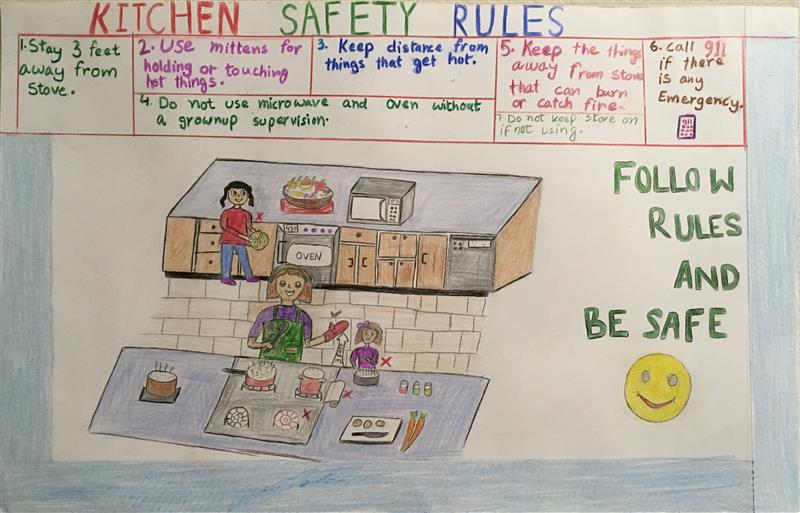 KITCHEN SAFETY RULES
1. Stay 3 feet
away from
Stove.
2. Use mittens for
holding or touching
hot things.
3. Keep distance from
things that get hot.
4. Do not use microwave and oven without
a grownup supervision.
5. Keep the things
away from stove
that can burn
or catch fire.
6. Call 911
if there
is any
Emergency.
911
7. Do not keep stove on
if not using.
FOLLOW
RULES
AND
BE SAFE
OVEN